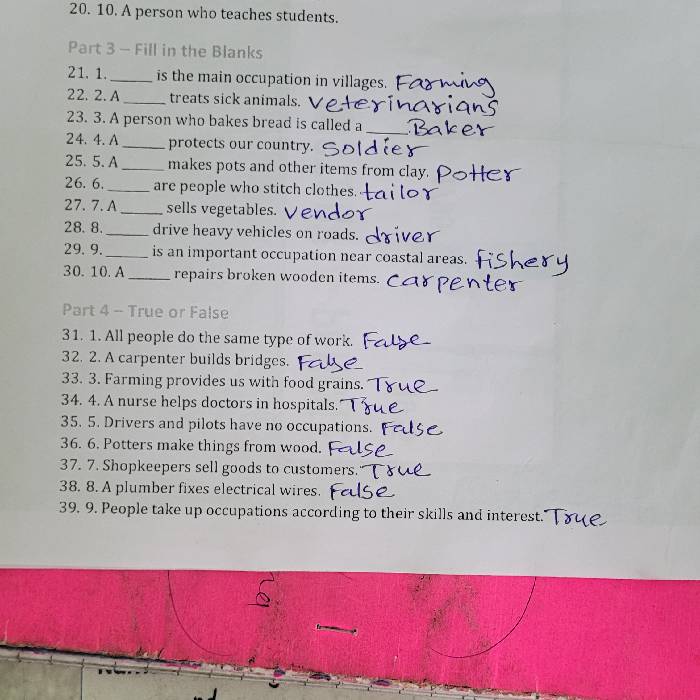 20. 10. A person who teaches students.
Part 3 – Fill in the Blanks
21. 1. ______ is the main occupation in villages. Farming
22. 2. A ______ treats sick animals. veterinarians
23. 3. A person who bakes bread is called a ______. Baker
24. 4. A ______ protects our country. Soldier
25. 5. A ______ makes pots and other items from clay. Potter
26. 6. ______ are people who stitch clothes. tailor
27. 7. A ______ sells vegetables. vendor
28. 8. ______ drive heavy vehicles on roads. driver
29. 9. ______ is an important occupation near coastal areas. fishery
30. 10. A ______ repairs broken wooden items. carpenter
Part 4 – True or False
31. 1. All people do the same type of work. False
32. 2. A carpenter builds bridges. False
33. 3. Farming provides us with food grains. True
34. 4. A nurse helps doctors in hospitals. True
35. 5. Drivers and pilots have no occupations. False
36. 6. Potters make things from wood. False
37. 7. Shopkeepers sell goods to customers. True
38. 8. A plumber fixes electrical wires. False
39. 9. People take up occupations according to their skills and interest. True